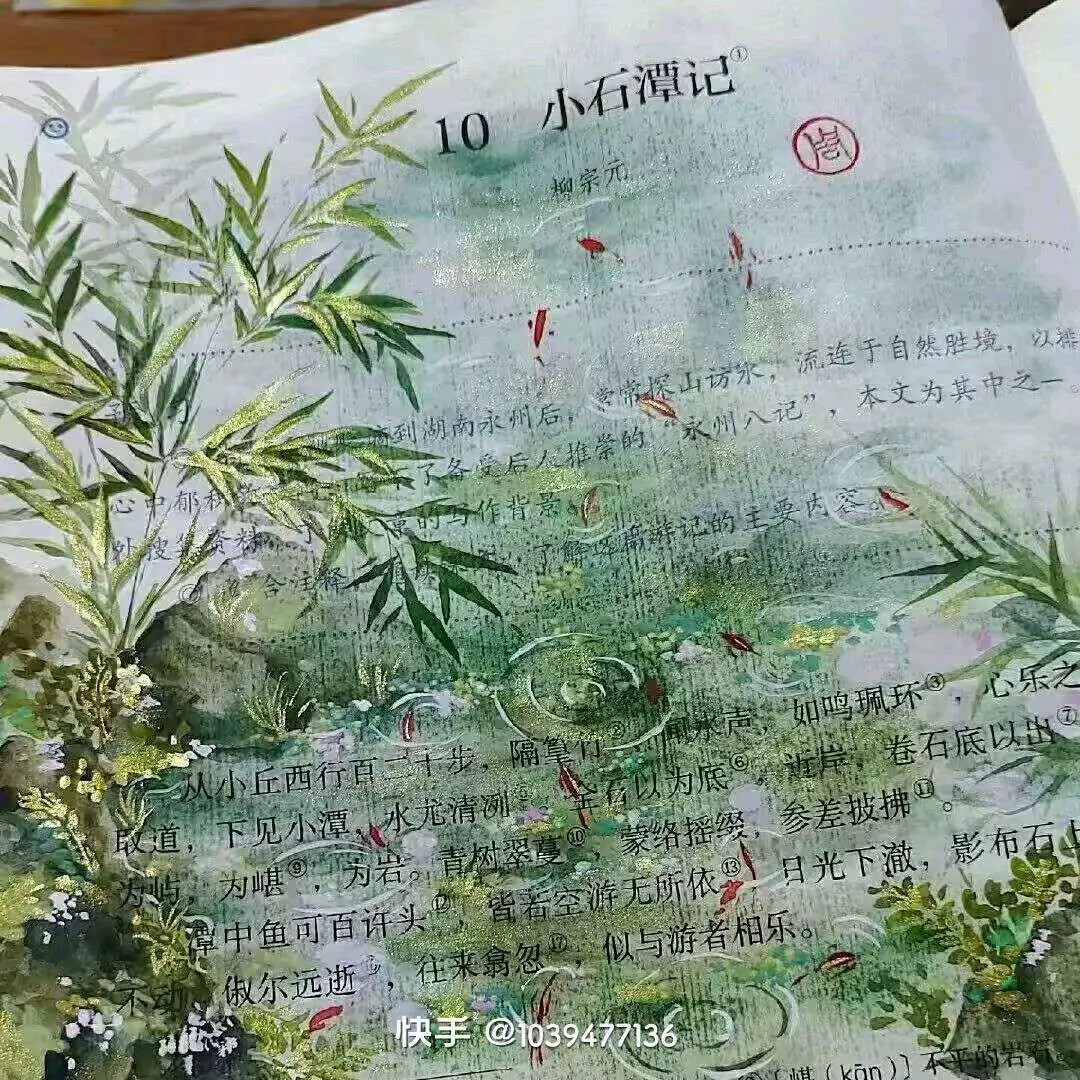 10 小石潭记①
柳宗元
到湖南永州后，常常探山访水，流连于自然胜境，以排
了备受后人推崇的“永州八记”，本文为其中之一。
心中郁积 的写作背景
外搜集资料 了解这篇游记的主要内容。
合注释
从小丘西行百二十步，隔篁竹 佩 声，如鸣珮环③，心乐之
取道，下见小潭，水尤清冽 全石以为底⑥，近岸，卷石底以出⑦
为屿，为嵁⑨，为岩。青树翠蔓⑩，蒙络摇缀，参差披拂⑪。
潭中鱼可百许头⑫，皆若空游无所依⑬ 日光下澈，影布石上
不动 俶尔远逝 ，往来翕忽⑰，似与游者相乐。
〔嵁（kān）〕不平的岩石
快手 @1039477136